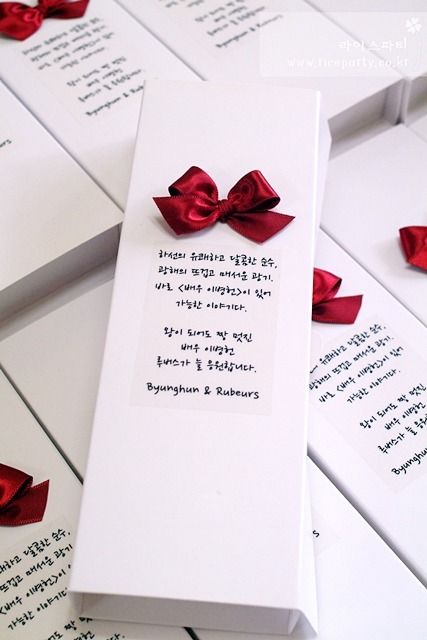 라이스파티
www.riceparty.co.kr
하선의 유쾌하고 달콤한 순수,
광해의 뜨겁고 매서운 광기.
바로 <배우 이병헌>이 있어
가능한 이야기다.
왕이 되어도 짱 멋진
배우 이병헌
루버스가 늘 응원합니다.
Byunghun & Rubeurs